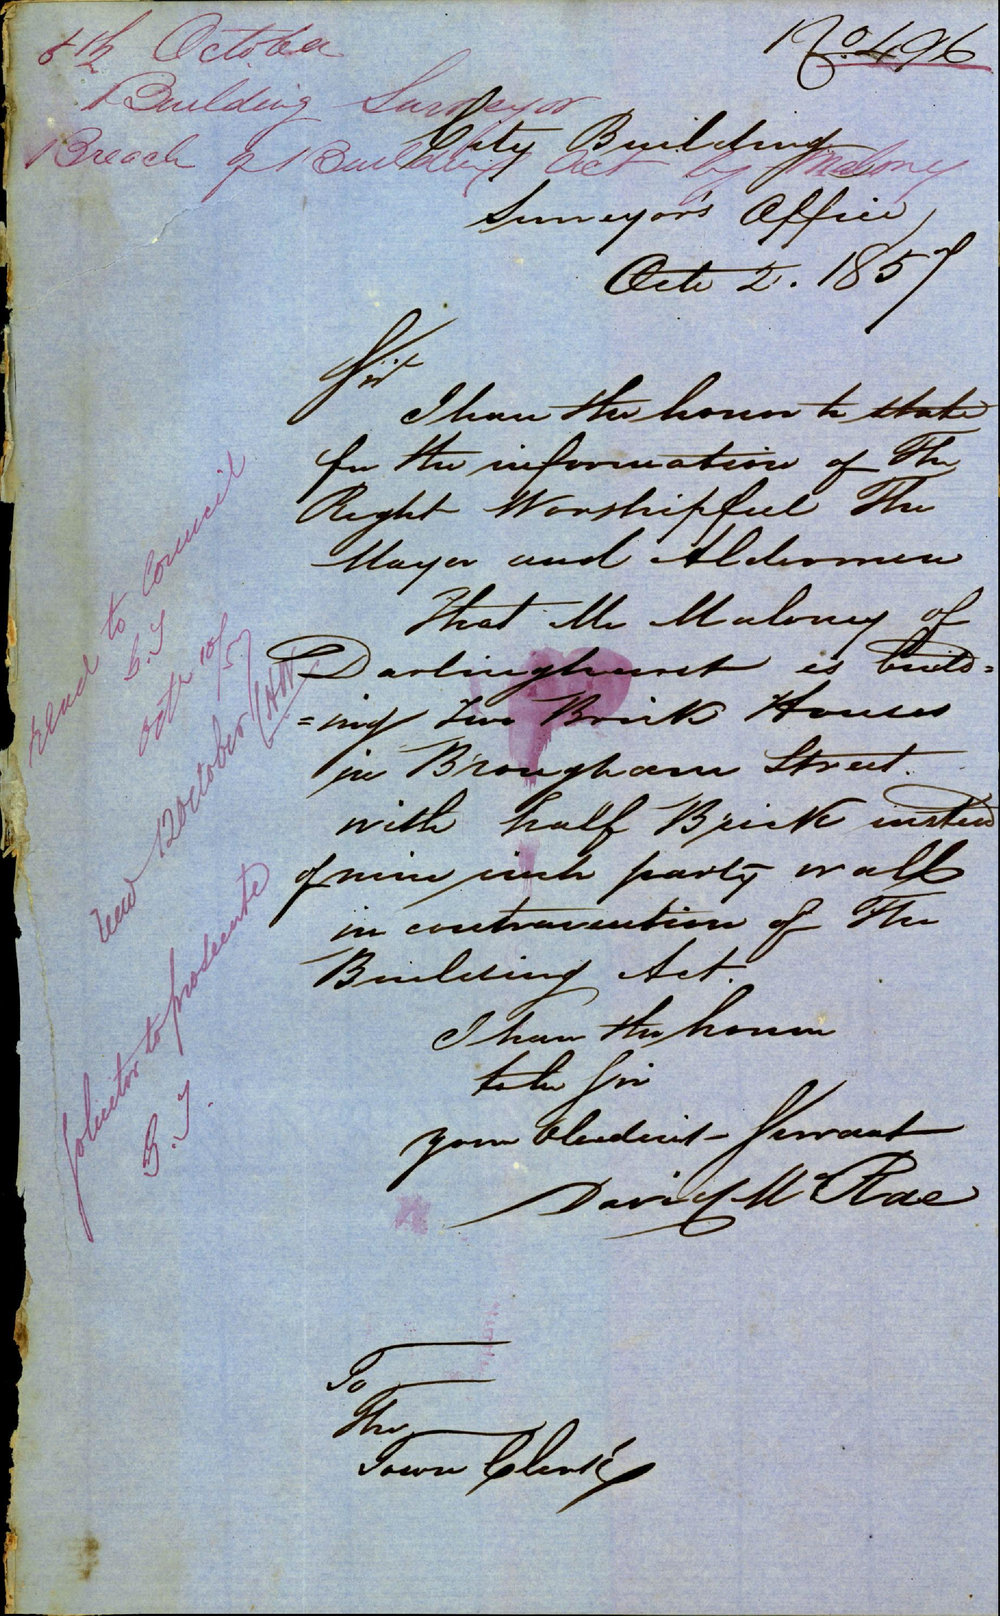 No. 496
5th October
Building Surveyor
Breach of Building Act by Maloney
City Building
Surveyor's Office,
Octr 2. 1857
Sir
I have the honor to state
for the information of The
Right Worshipful The
Mayor and Aldermen
That Mr Maloney of
Darlinghurst is build=
=ing Two Brick Houses
in Brougham Street.
with half Brick instead
of nine inch party wall
in contravention of The
Building Act.
I have the honor
to be Sir
your Obedient Servant
David McRae
To
The
Town Clerk
read to Council
Octr 10/57
12 October
Solicitor to prosecute